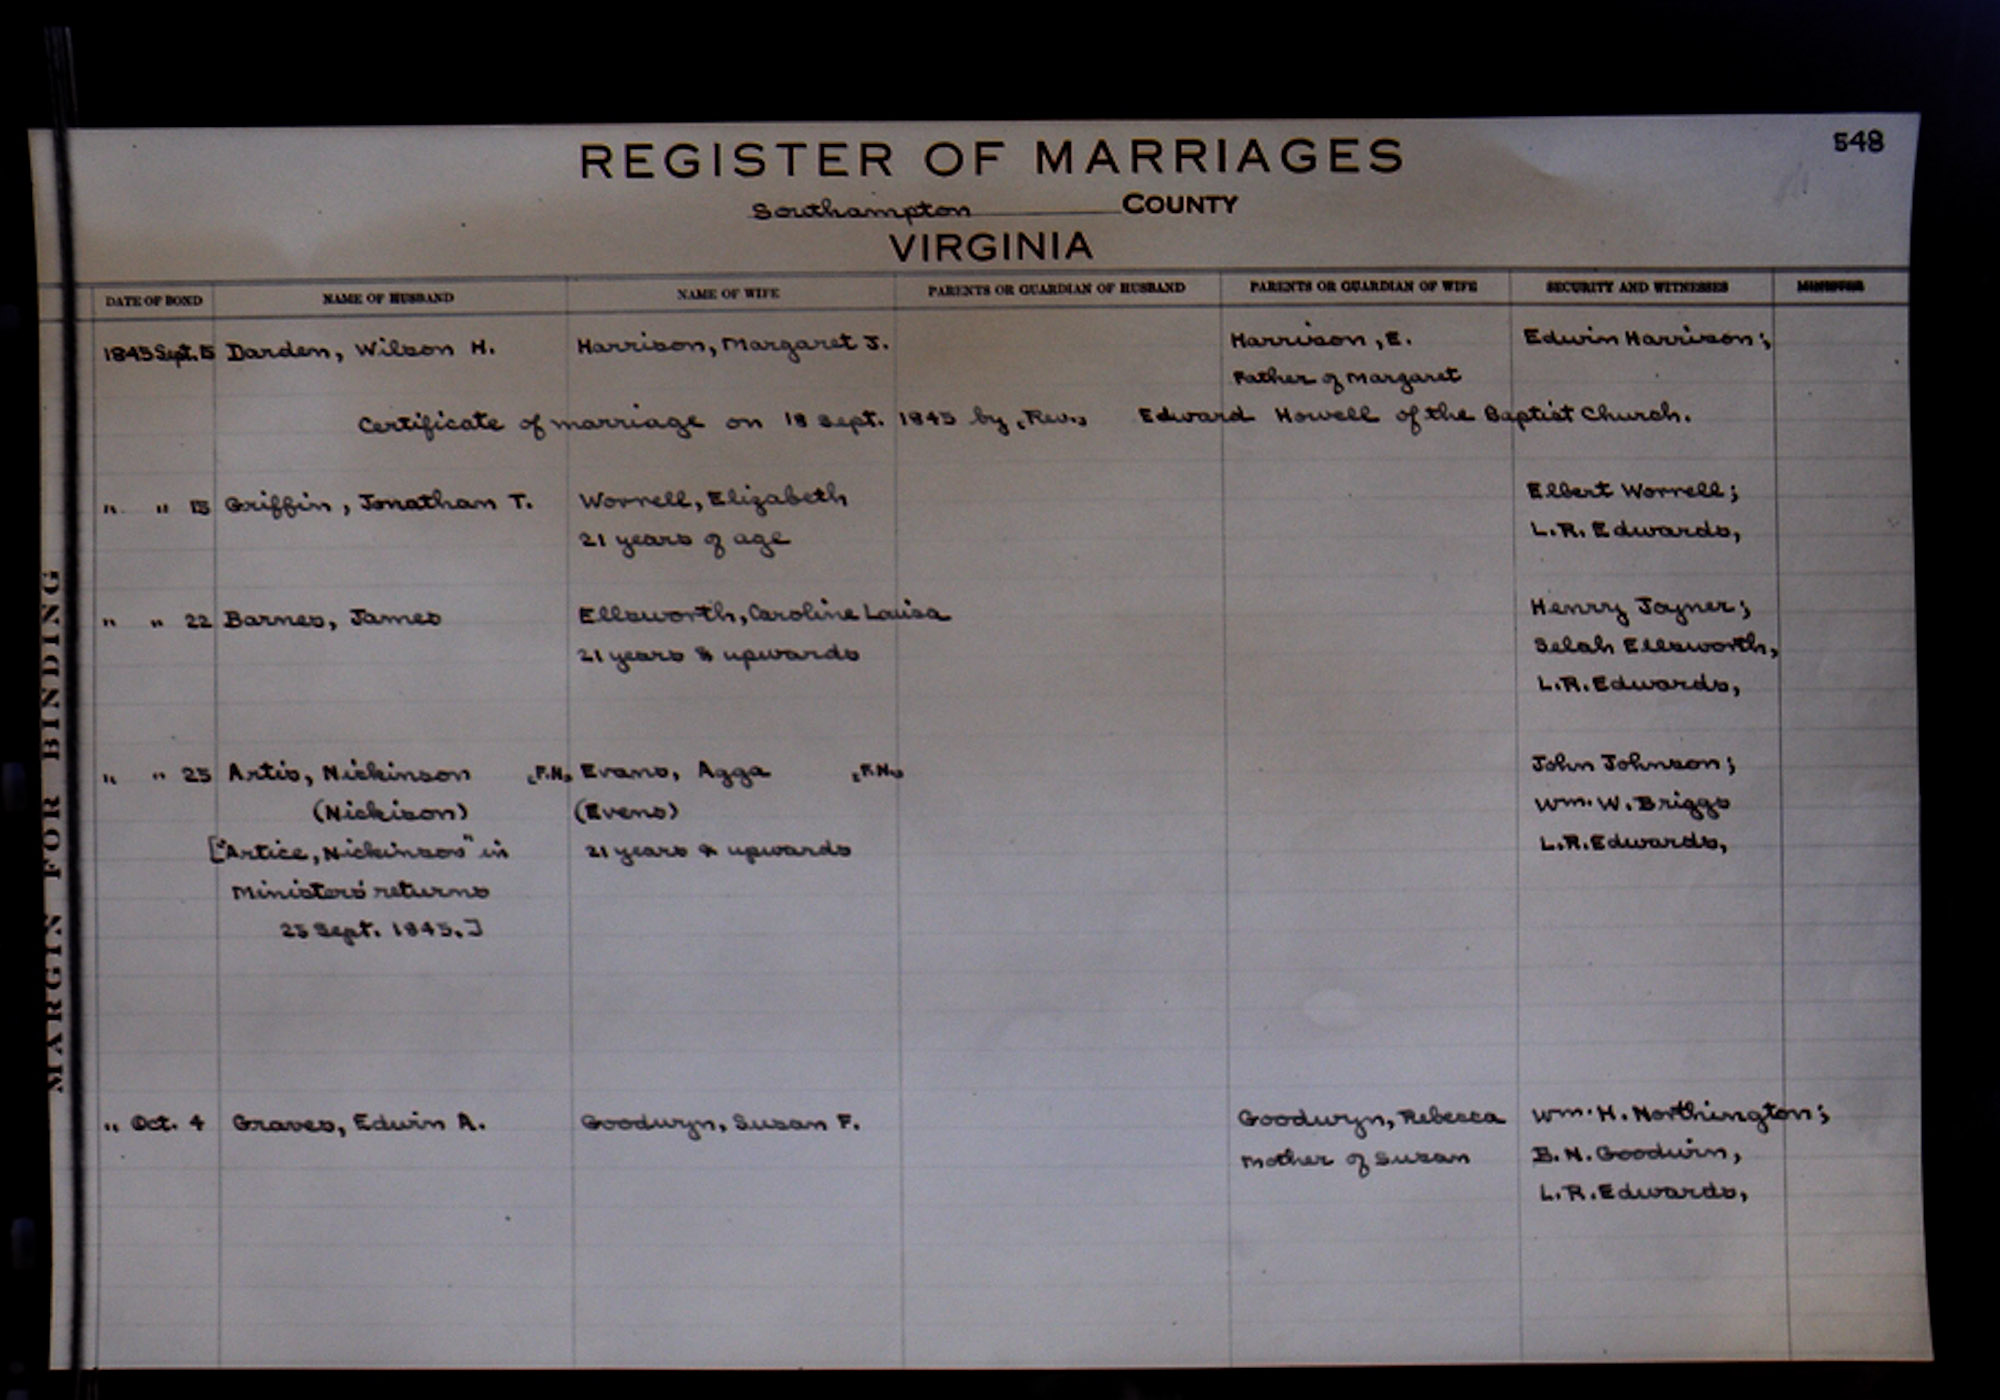 548
REGISTER OF MARRIAGES
Southampton COUNTY
VIRGINIA
DATE OF BOND NAME OF HUSBAND NAME OF WIFE PARENTS OR GUARDIAN OF HUSBAND PARENTS OR GUARDIAN OF WIFE SECURITY AND WITNESSES MINISTER
1845 Sept. 15 Darden, Wilson H. Harrison, Margaret J. Harrison, E. Edwin Harrison;
Father of Margaret
Certificate of marriage on 18 Sept. 1845 by [Rev.] Edward Howell of the Baptist Church.
" " 15 Griffin, Jonathan T. Worrell, Elizabeth Elbert Worrell;
21 years of age L.R. Edwards,
" " 22 Barnes, James Ellsworth, Caroline Louisa Henry Joyner;
21 years & upwards Selah Ellsworth,
L.R. Edwards,
" " 25 Artis, Nickinson [F.N.] Evans, Agga [F.N.] John Johnson;
(Nickison) (Evens) Wm. W. Briggs
["Artice, Nickinson" in 21 years & upwards L.R. Edwards,
Ministers' returns
25 Sept. 1845.]
" Oct. 4 Graves, Edwin A. Goodwyn, Susan F. Goodwyn, Rebecca Wm. H. Northington;
Mother of Susan B. N. Goodwin,
L.R. Edwards,
MARGIN FOR BINDING